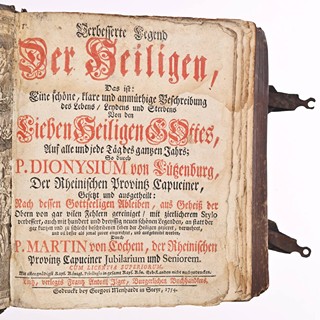 Verbesserte Legend
Der Heiligen,
Das ist:
Eine schöne, klare und anmüthige Beschreibung
des Lebens, Leydens und Sterbens
Von den
Lieben Heiligen GOttes,
Auf alle und jede Täg des gantzen Jahrs;
So durch
P. DIONYSIUM von Lützenburg,
Der Rheinischen Provintz Capuciner,
Gesetzt und ausgetheilt:
Nach dessen Gottseeligen Ableiben, aus Geheiß der
Obern von gar vilen Fehlern gereiniget, mit zierlicherem Stylo
verbessert, auch mit hundert und dreyssig neuen schönen Legenden, an statt der
gar kurtzen und zu schlecht beschribenen Leben der Heiligen gezieret, vermehret,
und
Durch
P. MARTIN von Cochem, der Rheinischen
Provintz Capuciner Jubilarium und Seniorem.
CUM LICENTIA SUPERIORUM.
Mit
verlegts Frantz Antoni Ilger, Burgerlichen Buchhandlern.
Gedruckt bey Gregori Menhardt in Steyr,